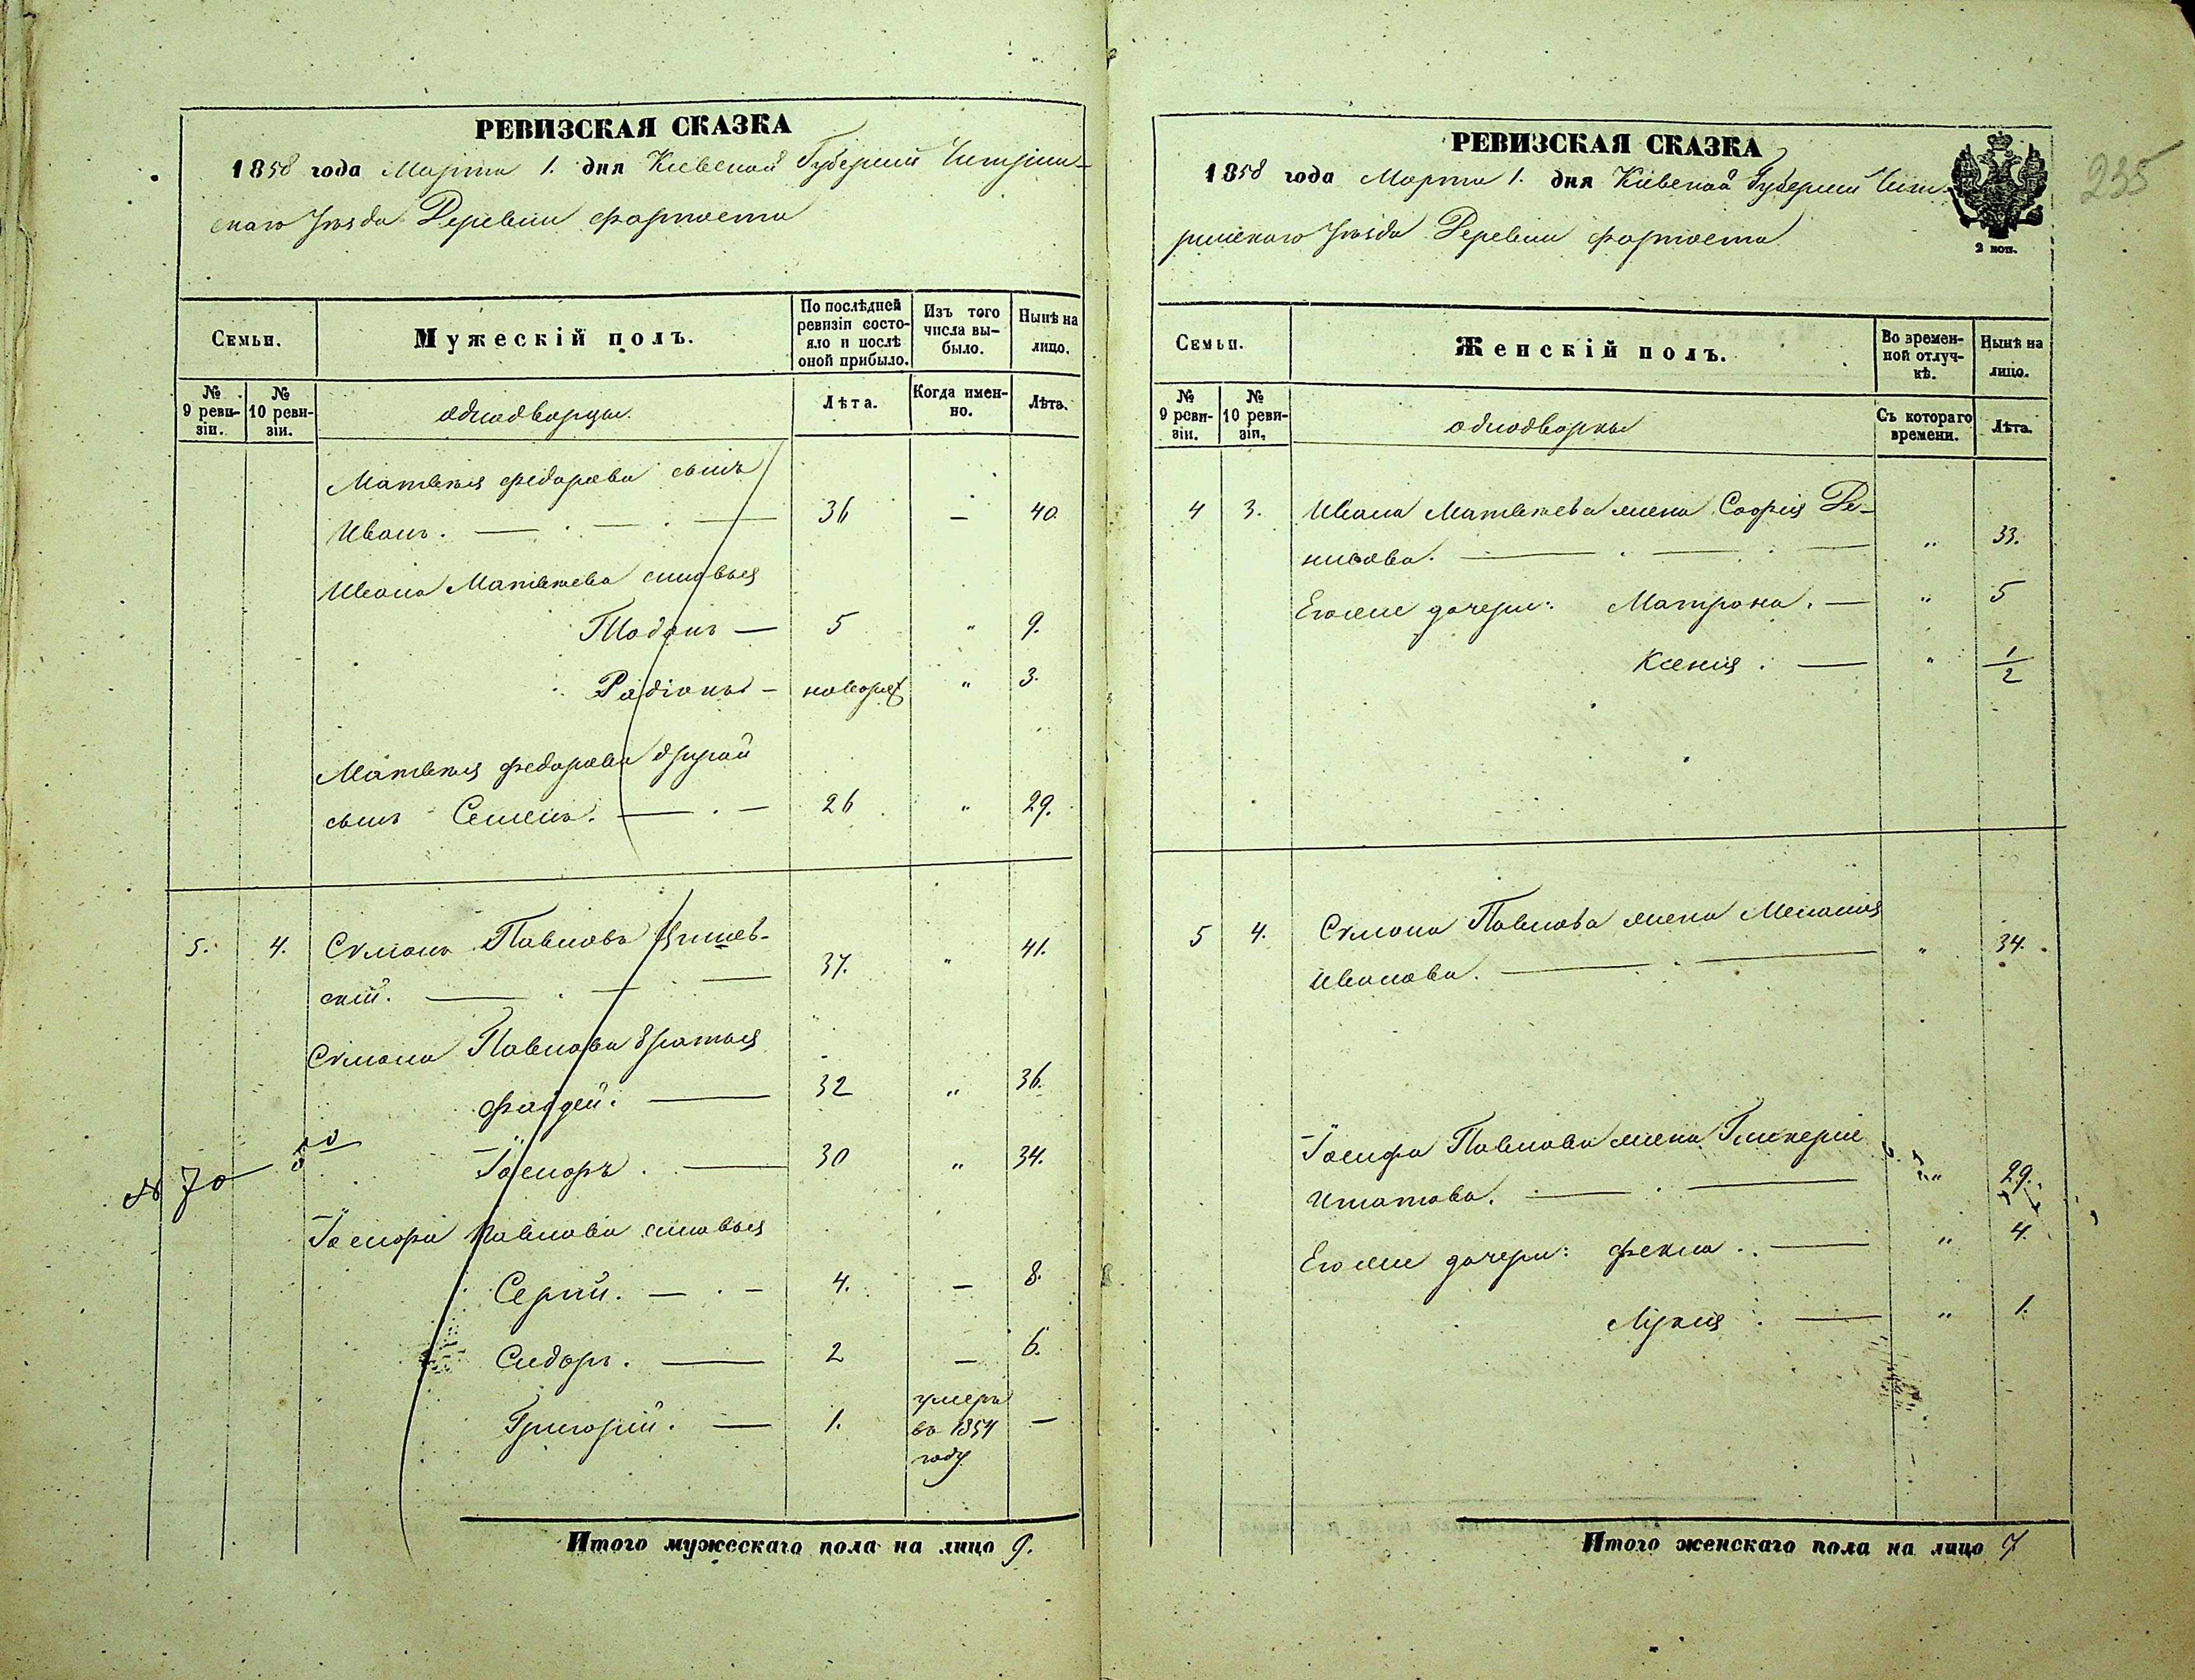 РЕВИЗСКАЯ СКАЗКА
1858 года Марта 1. дня Кіевской Губерніи Чигрин-
скаго Уѣзда Деревни Фортоста
Семьи.
Мужескій полъ.
По послѣдней ревизіи состо-яло и послѣ оной прибыло.
Изъ того числа вы-было.
Нынѣ на лицо.
№ 9 реви-зіи.
№ 10 реви-зіи.
однодворцы.
Лѣта.
Когда имен-но.
Лѣта.
Матвѣя Федорова сынъ
Иванъ. — 36 — 40.
Ивана Матвѣева сыновья
— 5 " 9.
Радіонъ — новорож " 3.
Матвѣя Федорова другой
сынъ Семенъ. — 26 " 29.
5. 4. Симонъ Павловъ
скій. — 37. " 41.
Симона Павлова братья
Фаддей. — 32 " 36.
№ 70
Іосифъ. — 30 " 34.
Іосифа Павлова сыновья
Сергій. — 4. — 8.
Сидоръ. — 2 — 6.
Григорій. — 1. умеръ въ 1854 году —
Итого мужескаго пола на лицо 9.
РЕВИЗСКАЯ СКАЗКА
1858 года Марта 1. дня Кіевской Губерніи Чиг-
ринскаго Уѣзда Деревни Фортоста
2 коп.
235
Семьи.
Женскій полъ.
Во времен-ной отлуч-кѣ.
Нынѣ на лицо.
№ 9 реви-зіи.
№ 10 реви-зіи.
однодворки
Съ котораго времени.
Лѣта.
4 3. Ивана Матвѣева жена Софія Де-
нисова. — " 33.
Его же дочери: Матрона. — " 5
Ксенія. — " 1/2
5 4. Симона Павлова жена Меланія
Иванова. — " 34.
Іосифа Павлова жена Гликерія
Игнатова. — " 29.
Его же дочери: Фекла. — " 4.
Лукія — " 1.
Итого женскаго пола на лицо 7